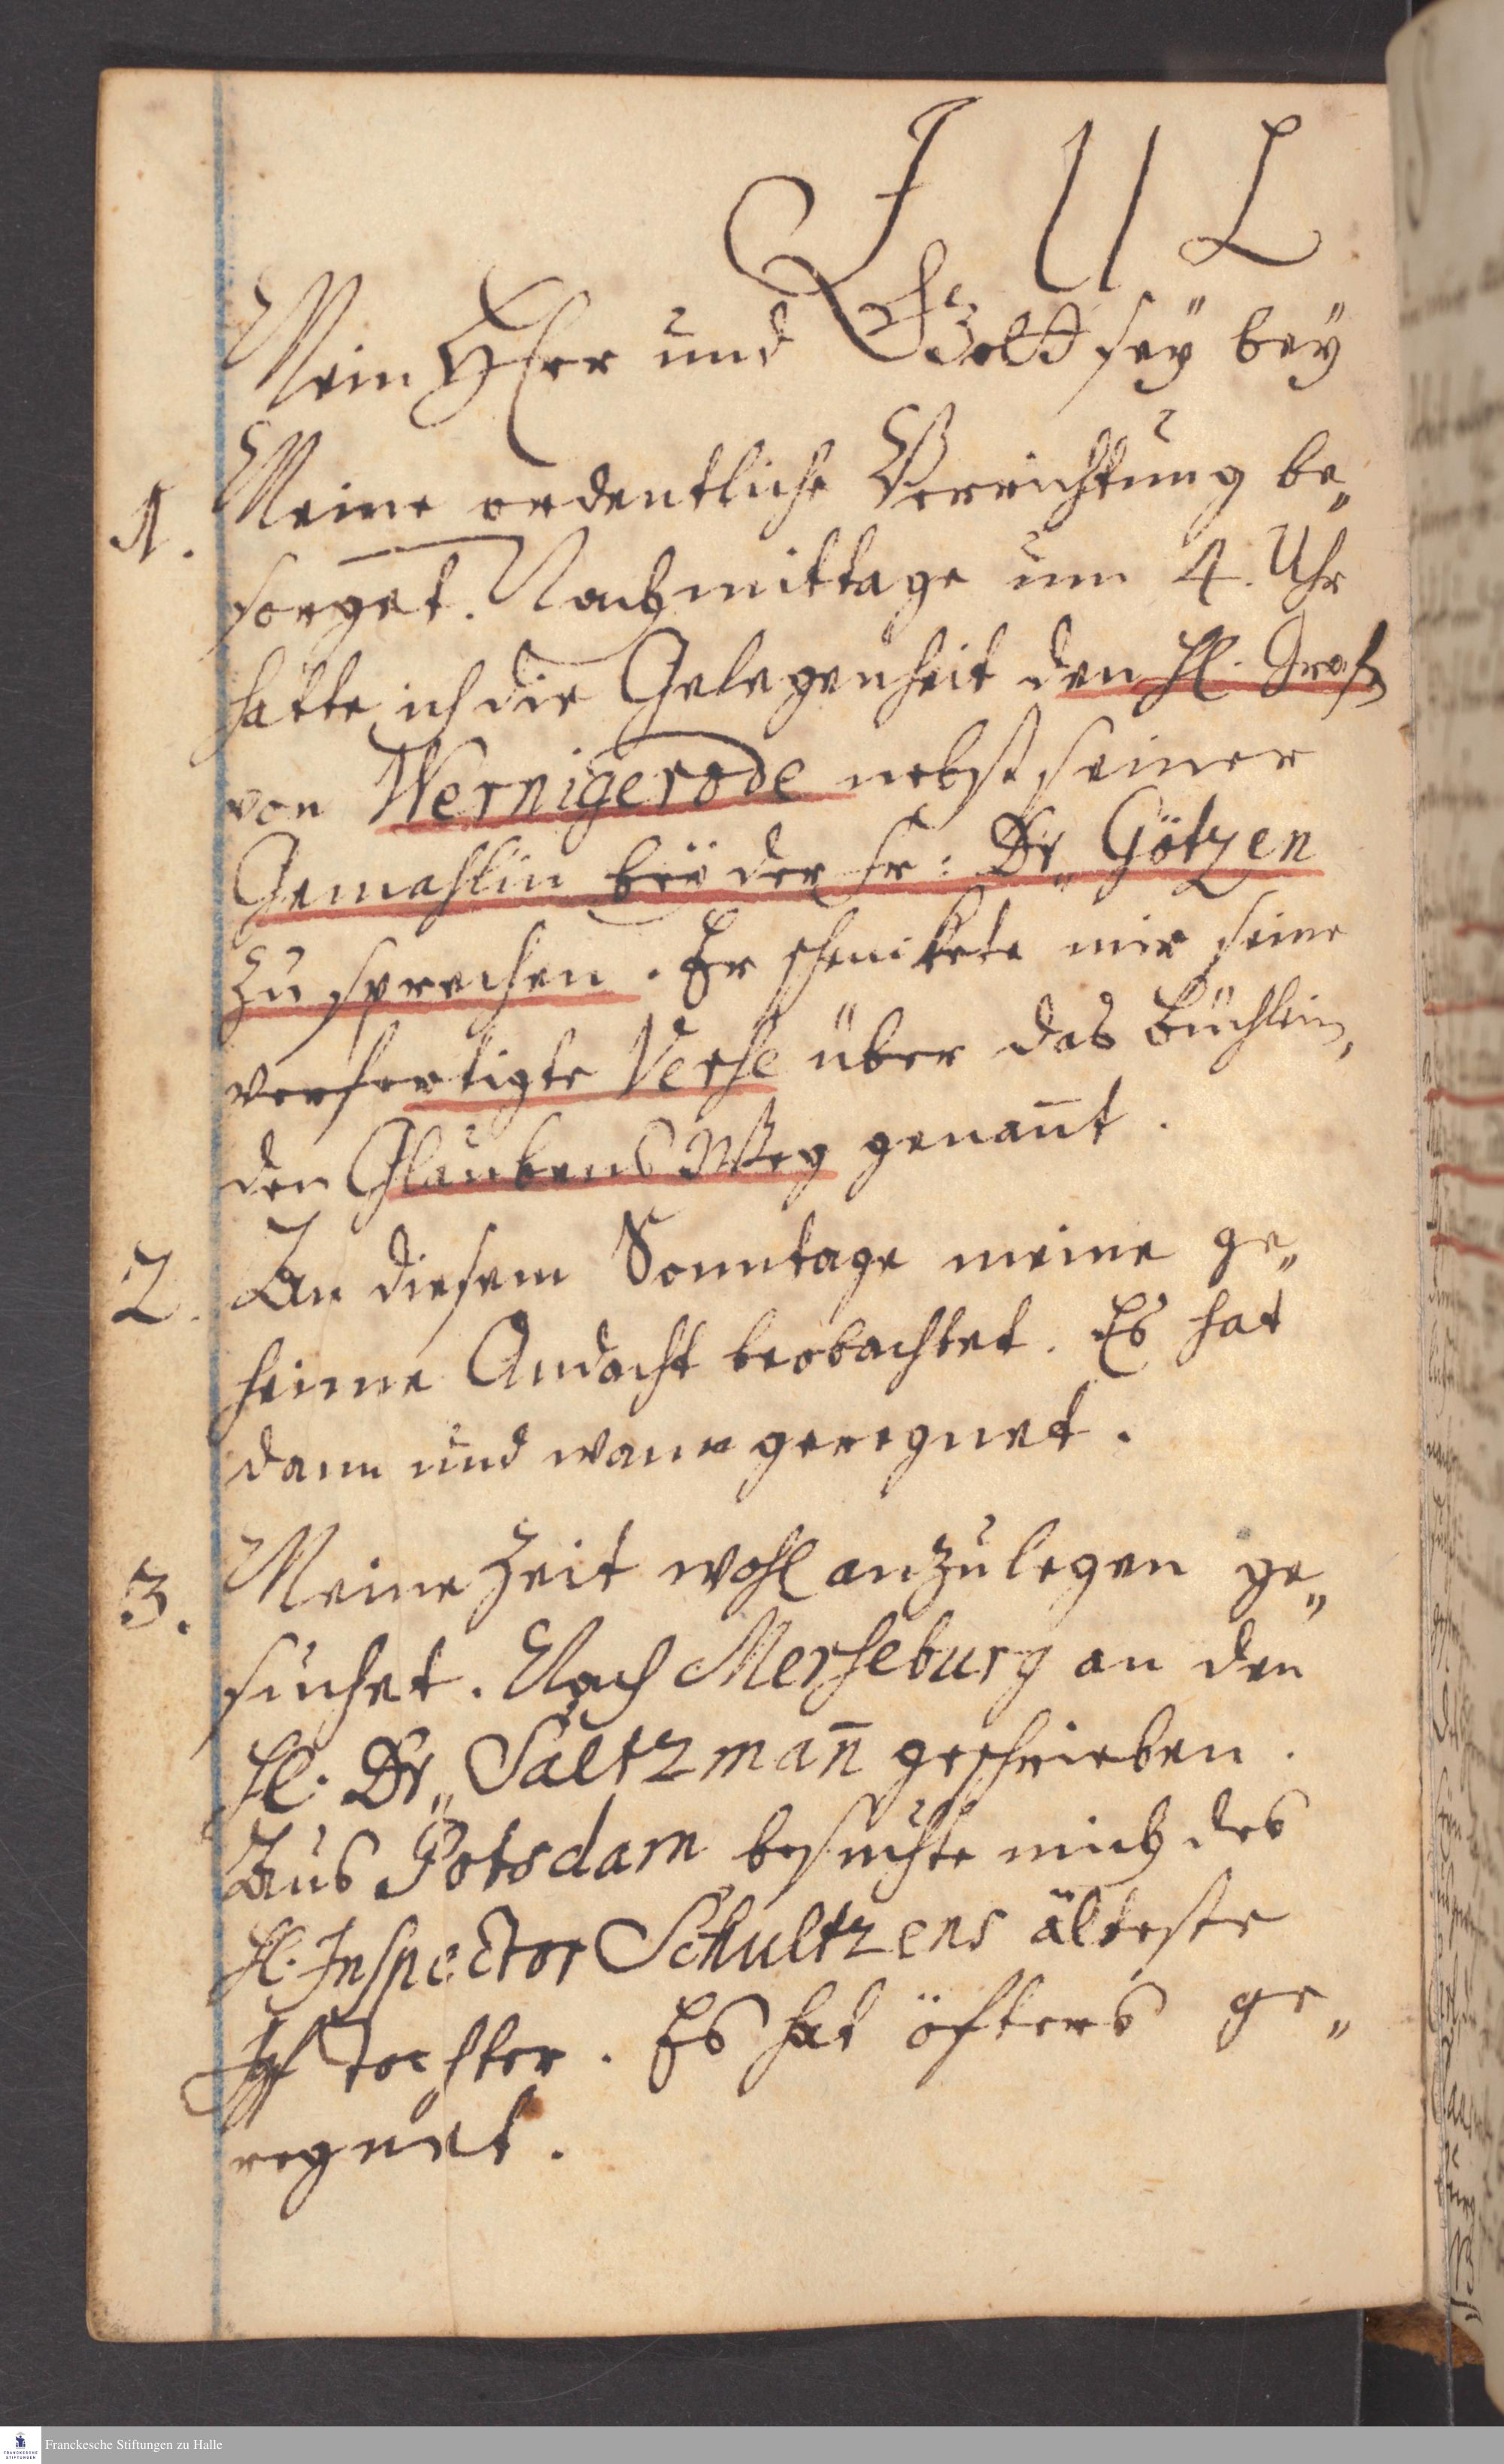 J U L
Mein HErr und GOtt sey bey
1. Meine ordentliche Verrichtung be„
sorget. Nachmittage um 4. Uhr
hatte ich die Gelegenheit den H. Graf
von Wernigerode nebst seiner
Gemahlin bey der Fr: Dr„ Götzen
zu sprechen. Er schenckete mir seine
verfertigte Verse über das Büchlein,
den Glaubens Weg genañt.
2. An diesem Sonntage meine ge„
heime Andacht beobachtet. Es hat
dann und wann geregnet.
3. Meine Zeit wohl anzulegen ge„
suchet. Nach Merseburg an den
H. Dr„ Saltzmañ geschrieben.
Aus Potsdam besuchte mich des
H. Inspector Schultzens älteste
Tochter. Es hat öfters ge„
regnet.
Franckesche Stiftungen zu Halle